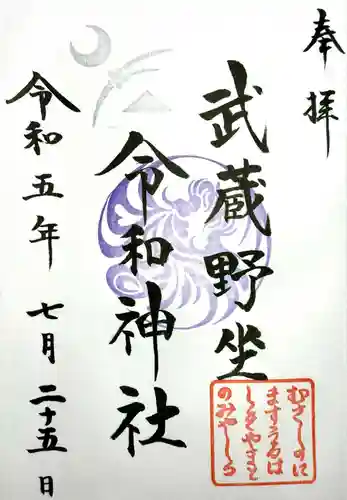 奉拝
武蔵野坐
令和神社
令和五年 七月 二十五日
むさしのに
ますうるは
しきやまと
のみやしろ